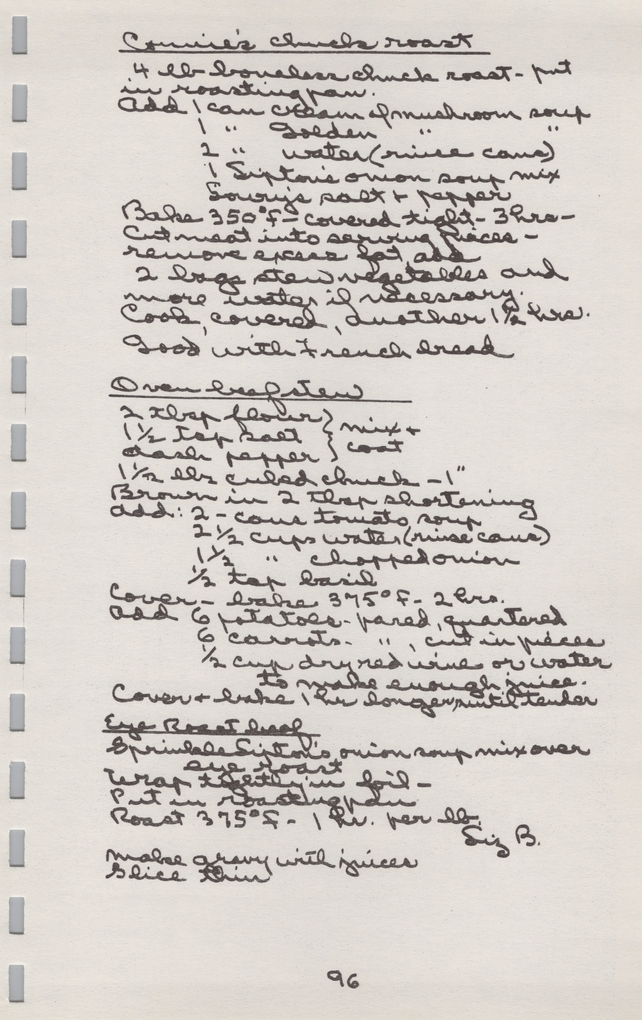 Connie's chuck roast
4 lb boneless chuck roast - put
in roasting pan.
Add 1 can cream of mushroom soup
1 " Golden " "
2 " water (rinse cans)
1 Lipton's onion soup mix
Lowry's salt + pepper
Bake 350°F - covered tight - 3 hrs -
Cut meat into serving pieces -
remove excess fat, add
2 bags stew vegetables and
more water if necessary.
Cook, covered, another 1 1/2 hrs.
Good with French bread
Oven beef stew
2 tbsp flour } mix +
1 1/2 tsp salt } coat
dash pepper }
1 1/2 lbs cubed chuck - 1"
Brown in 2 tbsp shortening
Add: 2 - cans tomato soup
2 1/2 cups water (rinse cans)
1 1/2 " chopped onion
1/2 tsp basil
Cover - bake 375°F - 2 hrs.
Add 6 potatoes - pared, quartered
6 carrots - ", cut in pieces
1/2 cup dry red wine or water
to make enough juice.
Cover + bake 1 hr longer, until tender
Eye Roast beef
Sprinkle Lipton's onion soup mix over
eye roast
Wrap tightly in foil -
Put in roasting pan
Roast 375°F - 1 hr. per lb.
Liz B.
Make gravy with juices
Slice thin
96